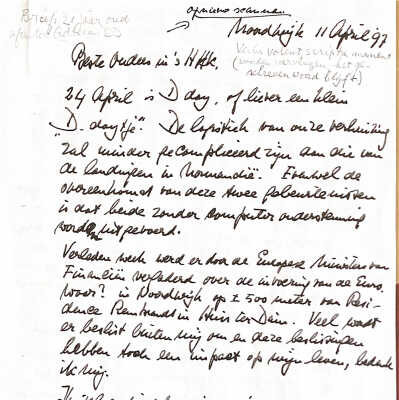 opnieuw scannen
Noordwijk 11 April '97
Brief, 21 jaar oud
Verba volent, scripta manent
(woorden vervliegen, het ge-
schreven woord blijft)
Beste Ouders in 's HHk.
24 April is D day, of liever een klein
"D-daytje". De logistiek van onze verhuizing
zal minder gecompliceerd zijn dan die van
de landingen in Normandië. Evenwel de
overeenkomst van deze twee gebeurtenissen
is dat beide zonder computer ondersteuning
worden uitgevoerd.
Verleden week werd er door de Europese Ministers van
Financiën vergaderd over de invoering van de Euro.
Waar? in Noordwijk op ± 500 meter van Resi-
dence Rembrandt in Huis ter Duin. Veel wordt
er beslist buiten mij om en deze beslissingen
hebben toch een impact op mijn leven, bedenk
ik mij.